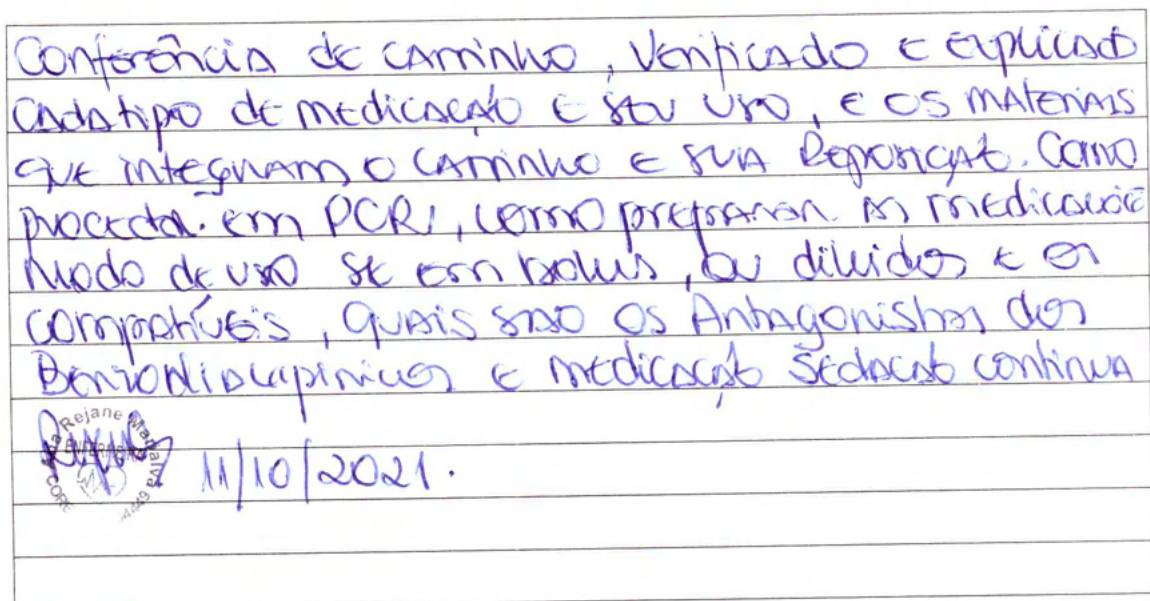 Conferência de carrinho, Verificado e explicado
cada tipo de medicação e seu uso, e os materiais
que integram o carrinho e sua Reposição. Como
proceder em PCR, como preparar as medicações
modo de uso se em bolus, ou diluidos e os
compatíveis, quais são os Antagonistas dos
Benzodiazepinicos e medicação sedação continua
Rejane
11/10/2021.